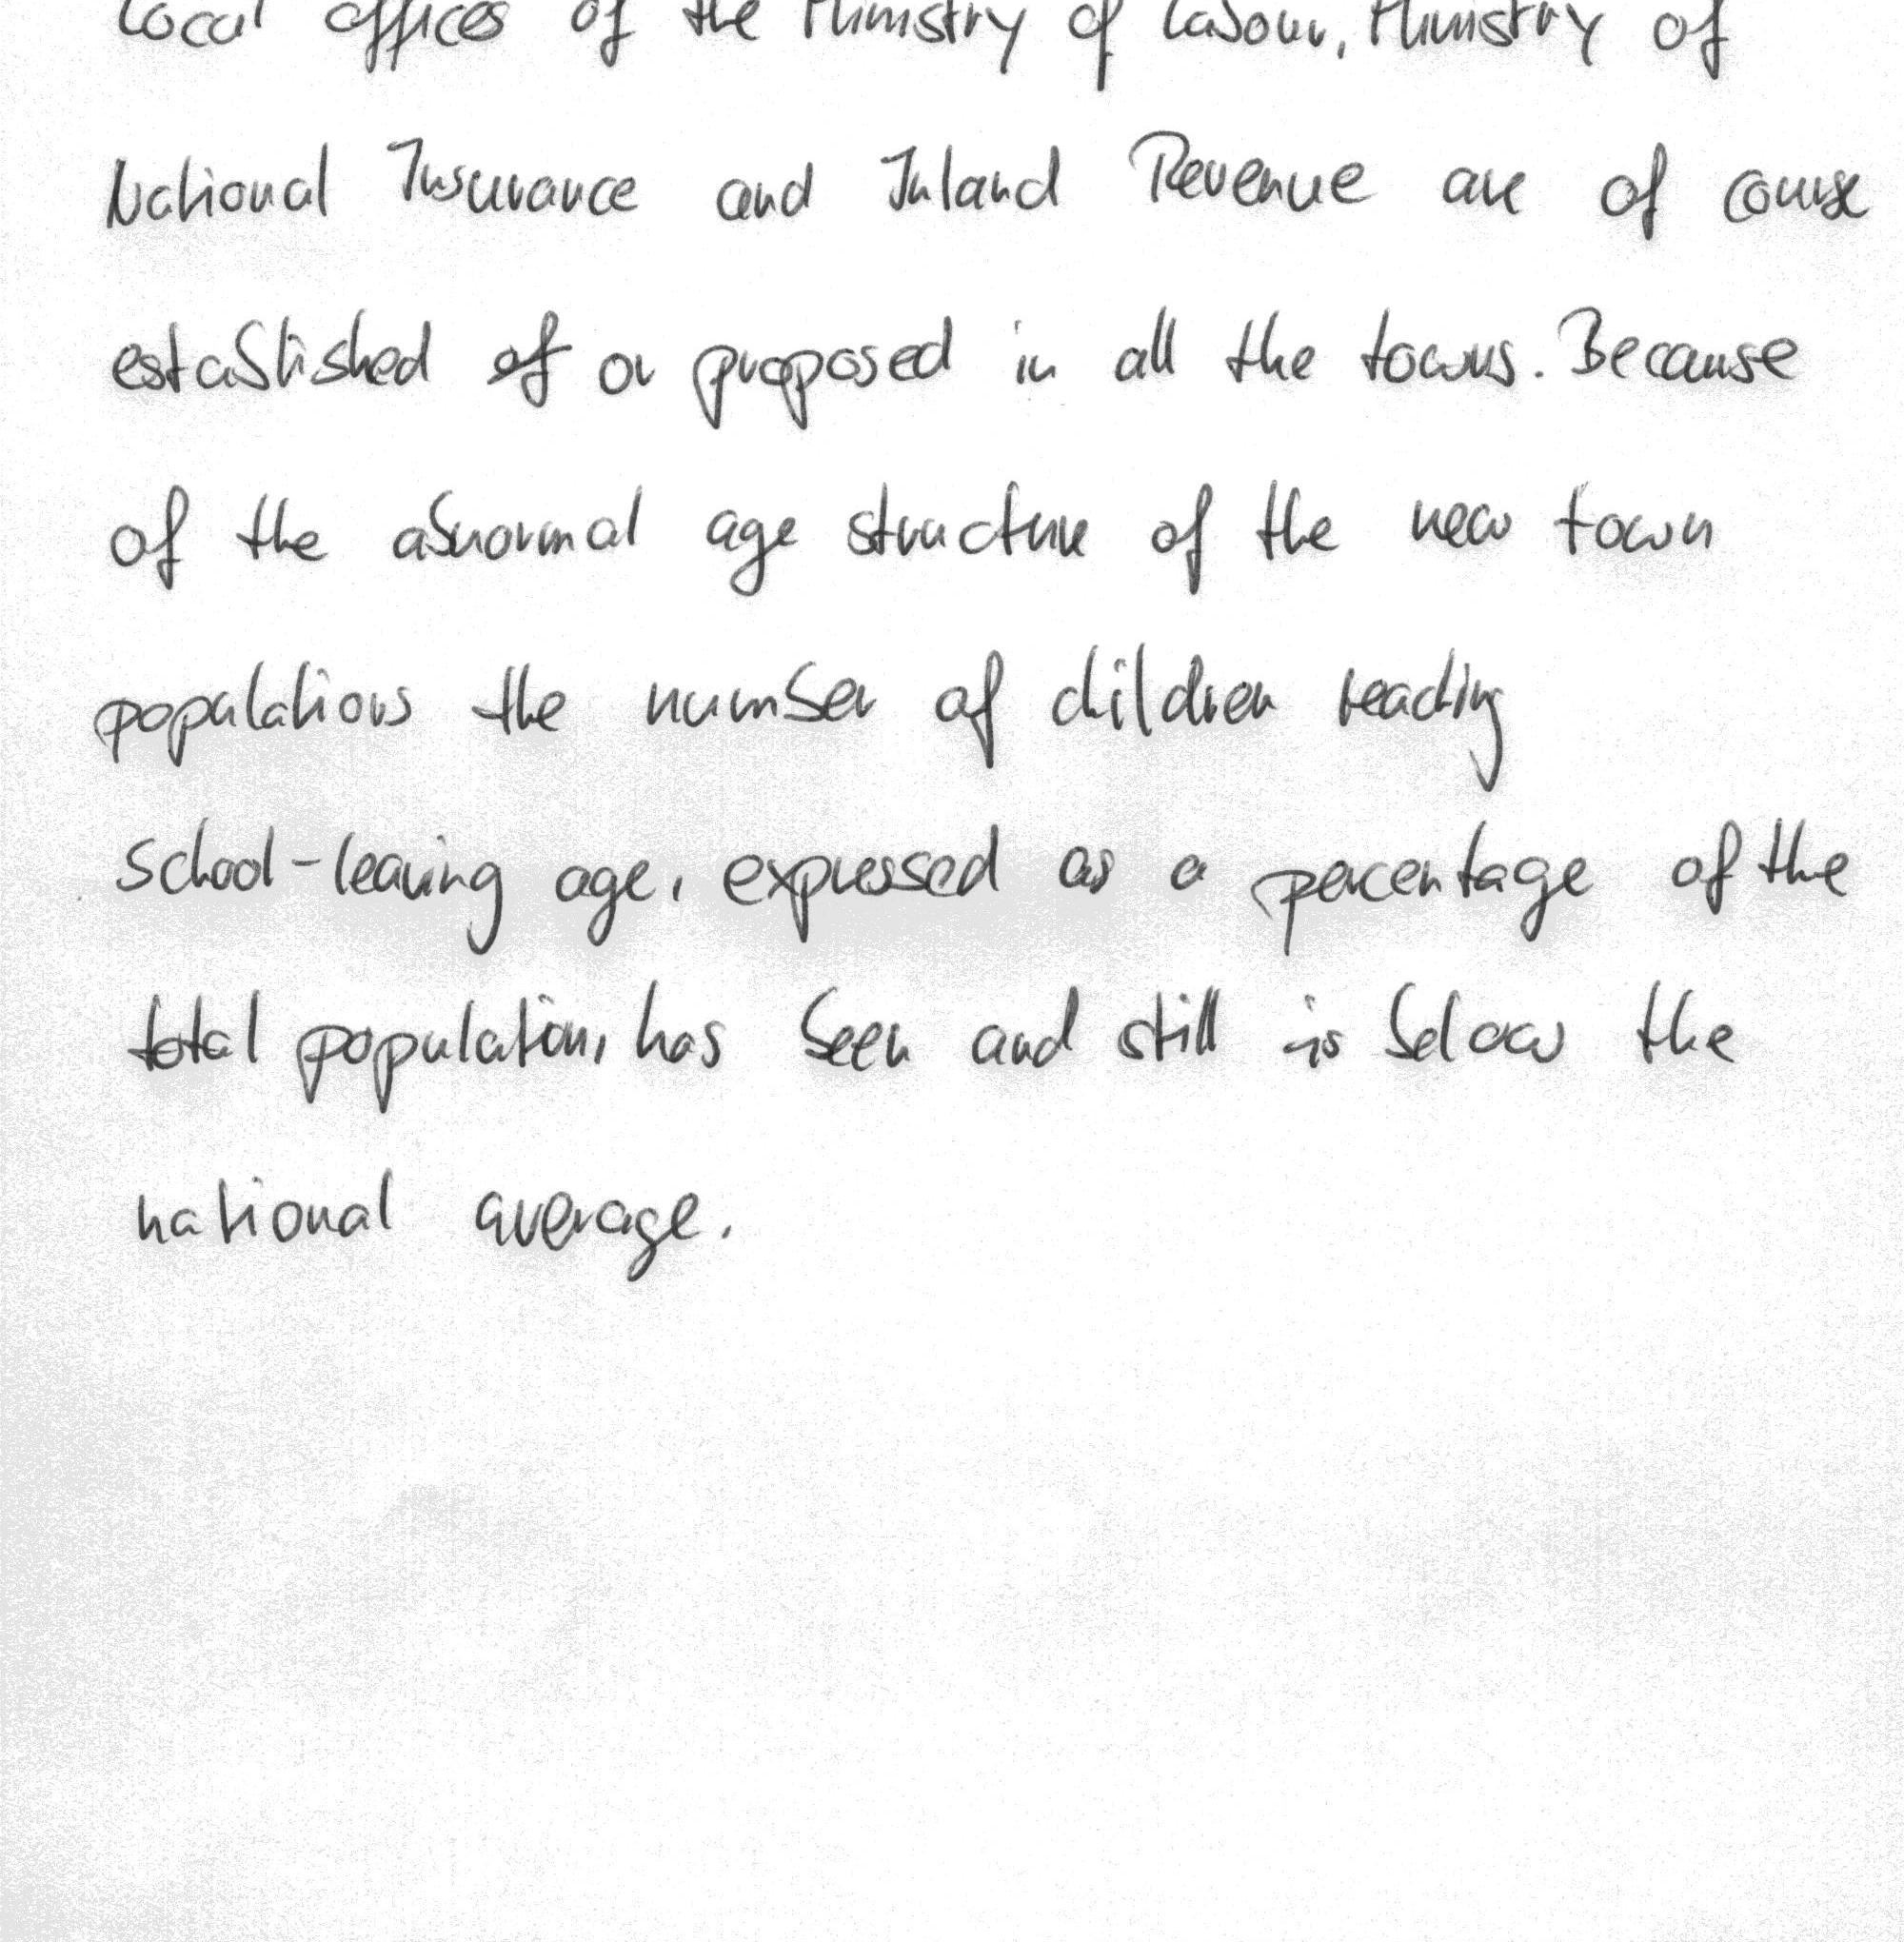 Local offices of the Ministry of Labour, Ministry of
National Insurance and Inland Revenue are of course
established of or proposed in all the towns. Because
of the abnormal age structure of the new town
populations the number of children reaching
school-leaving age, expressed as a percentage of the
total population, has been and still is below the
national average.